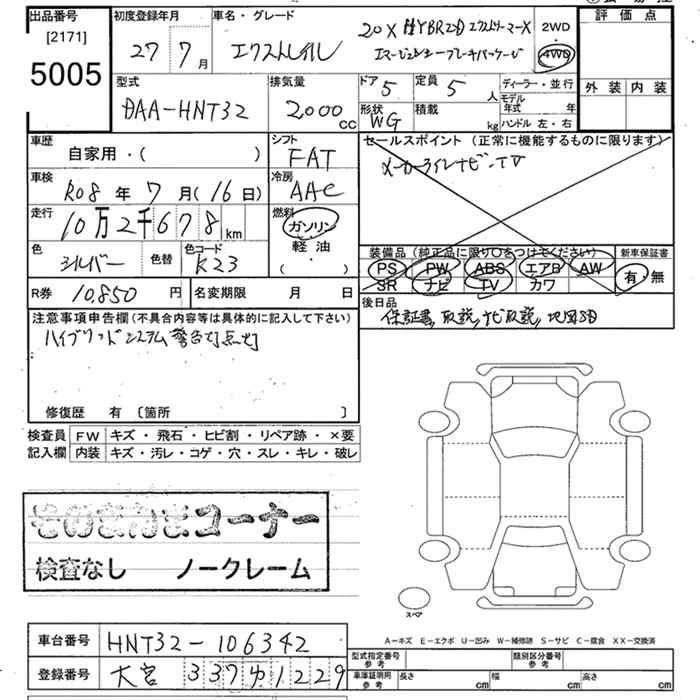 出品番号 初度登録年月 車名・グレード 評価点
[2171] 5005
27年 7月 エクストレイル 20X HYBRID エクストリーマーX 2WD
エマージェンシーブレーキパッケージ 4WD
型式 排気量 ドア 5 定員 5人 ディーラー・並行
DAA-HNT32 2,000cc 形状 WG 積載 kg モデル年式 年
ハンドル 左・右 外装 内装
車歴 自家用・( ) シフト FAT セールスポイント (正常に機能するものに限ります)
メーカーラインナビ-TV
車検 R08年 7月(16日) 冷房 AAC
走行 10万2千678km 燃料 ガソリン 軽油 ( ・ )
色 シルバー 色替 色コード K23
装備品 (純正品に限り○をつけてください) 新車保証書
PS PW ABS エアB AW 有・無
SR ナビ TV カワ
R券 10,850円 名変期限 月 日
後日品
保証書, 取説, ナビ取説, 地図SD
注意事項申告欄(不具合内容等は具体的に記入して下さい)
ハイブリッドシステム警告灯点灯
修復歴 有 〔箇所 〕
検査員 FW キズ・飛石・ヒビ割・リペア跡・×要
記入欄 内装 キズ・汚レ・コゲ・穴・スレ・キレ・破レ
そのまんまコーナー
検査なし ノークレーム
スペア
A-キズ E-エクボ U-凹み W-補修跡 S-サビ C-腐食 XX-交換済
車台番号 HNT32-106342
型式指定番号 参考 類別区分番号 参考
登録番号 大宮 337 1229
車庫証明用 参考 長さ cm 幅 cm 高さ cm